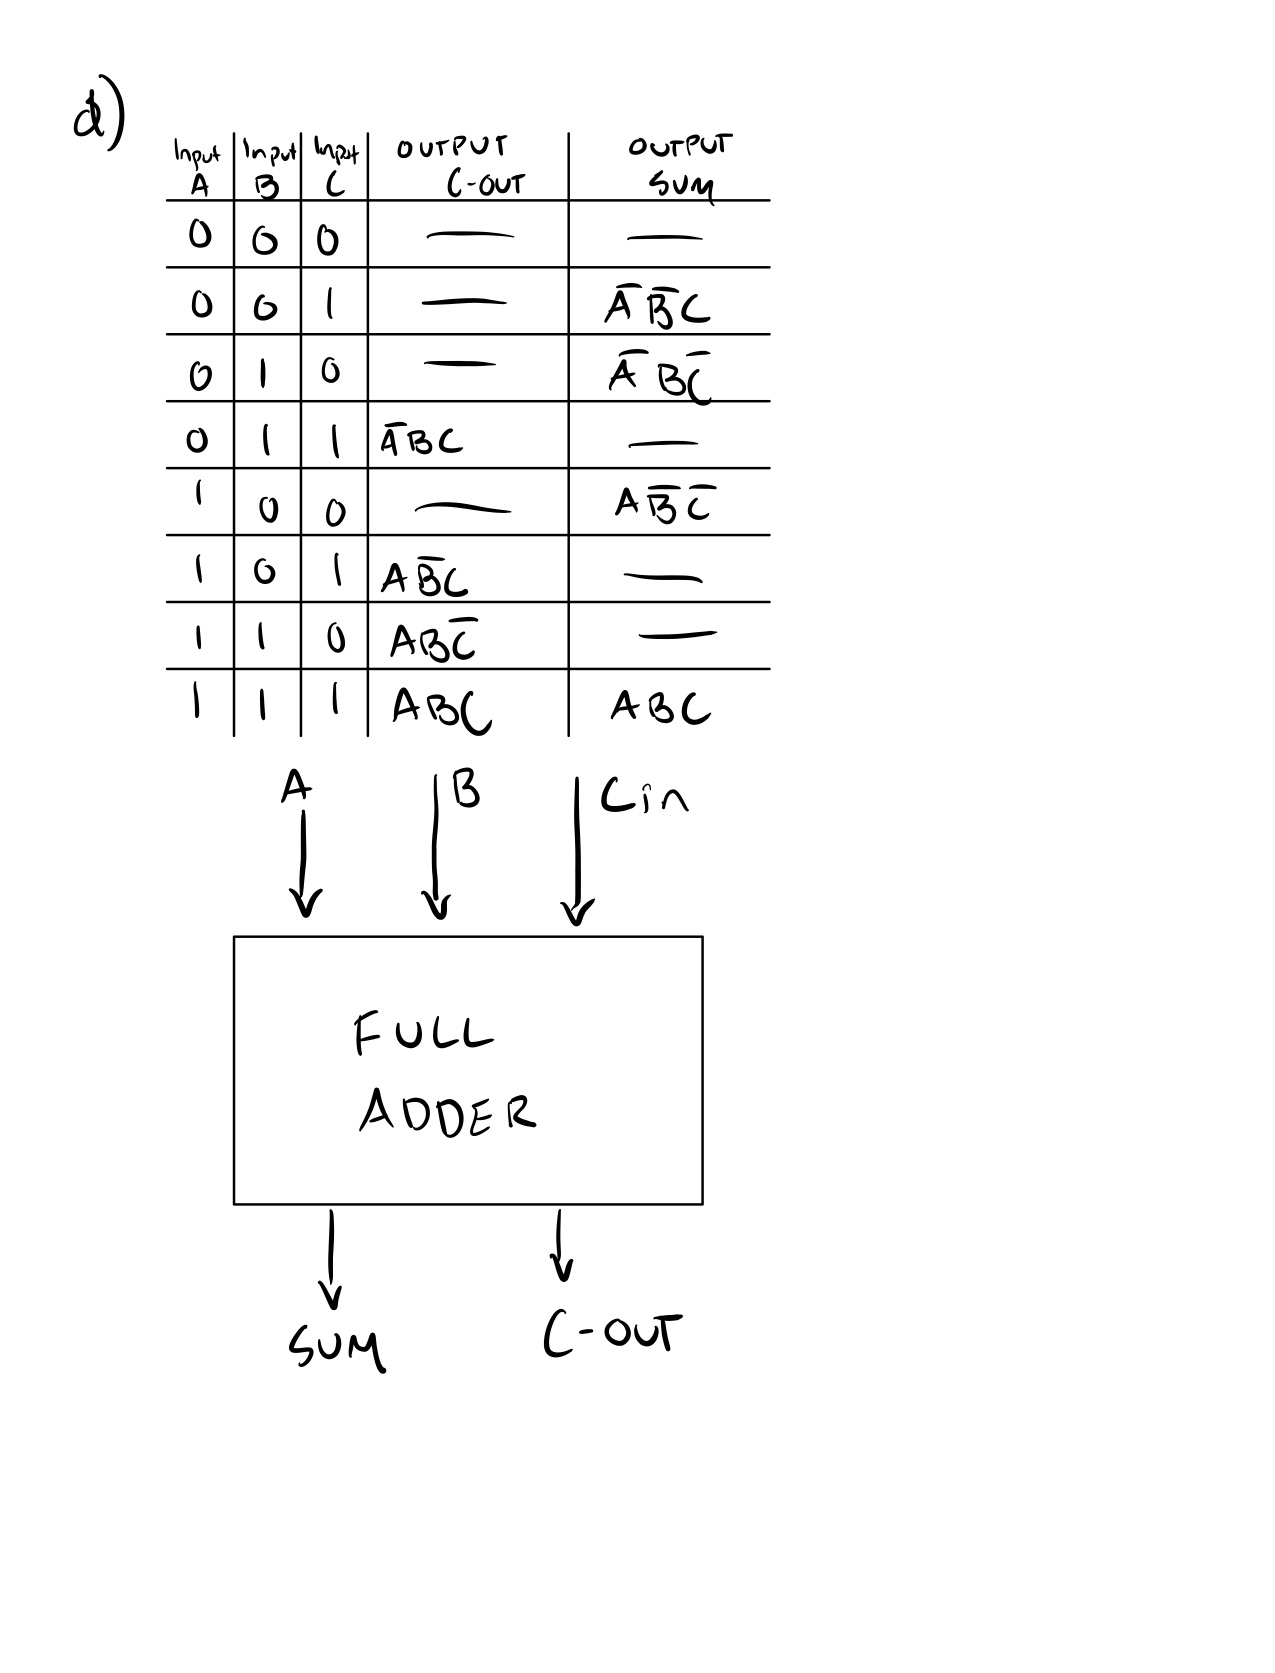 d)
Input Input Input OUTPUT OUTPUT
A B C C-OUT SUM
0 0 0 — —
0 0 1 — A̅B̅C
0 1 0 — A̅BC̅
0 1 1 A̅BC —
1 0 0 — AB̅C̅
1 0 1 AB̅C —
1 1 0 ABC̅ —
1 1 1 ABC ABC
A B Cin
FULL
ADDER
SUM C-OUT